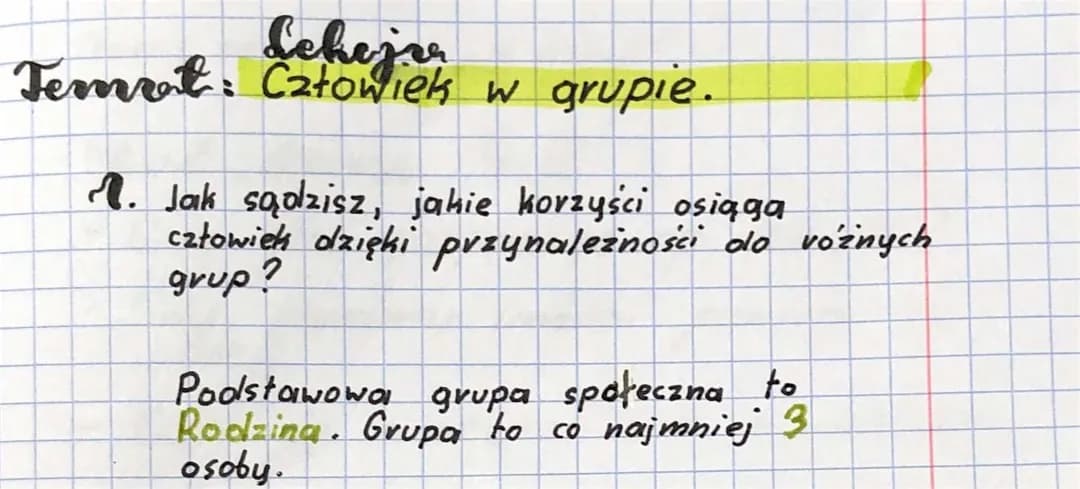 Lekcja
Temat: Człowiek w grupie.
1. Jak sądzisz, jakie korzyści osiąga
człowiek dzięki przynależności do różnych
grup?
Podstawowa grupa społeczna to
Rodzina. Grupa to co najmniej 3
osoby.